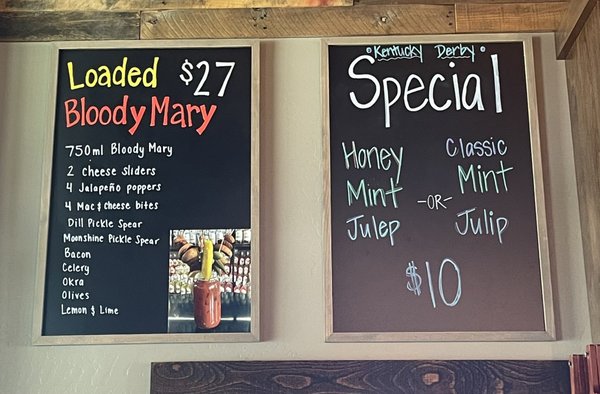 Loaded $27
Bloody Mary
750ml Bloody Mary
2 cheese sliders
4 Jalapeño poppers
4 Mac & cheese bites
Dill Pickle Spear
Moonshine Pickle Spear
Bacon
Celery
Okra
Olives
Lemon & Lime
Kentucky Derby
Special
Honey
Mint
Julep
-OR-
Classic
Mint
Julip
$10